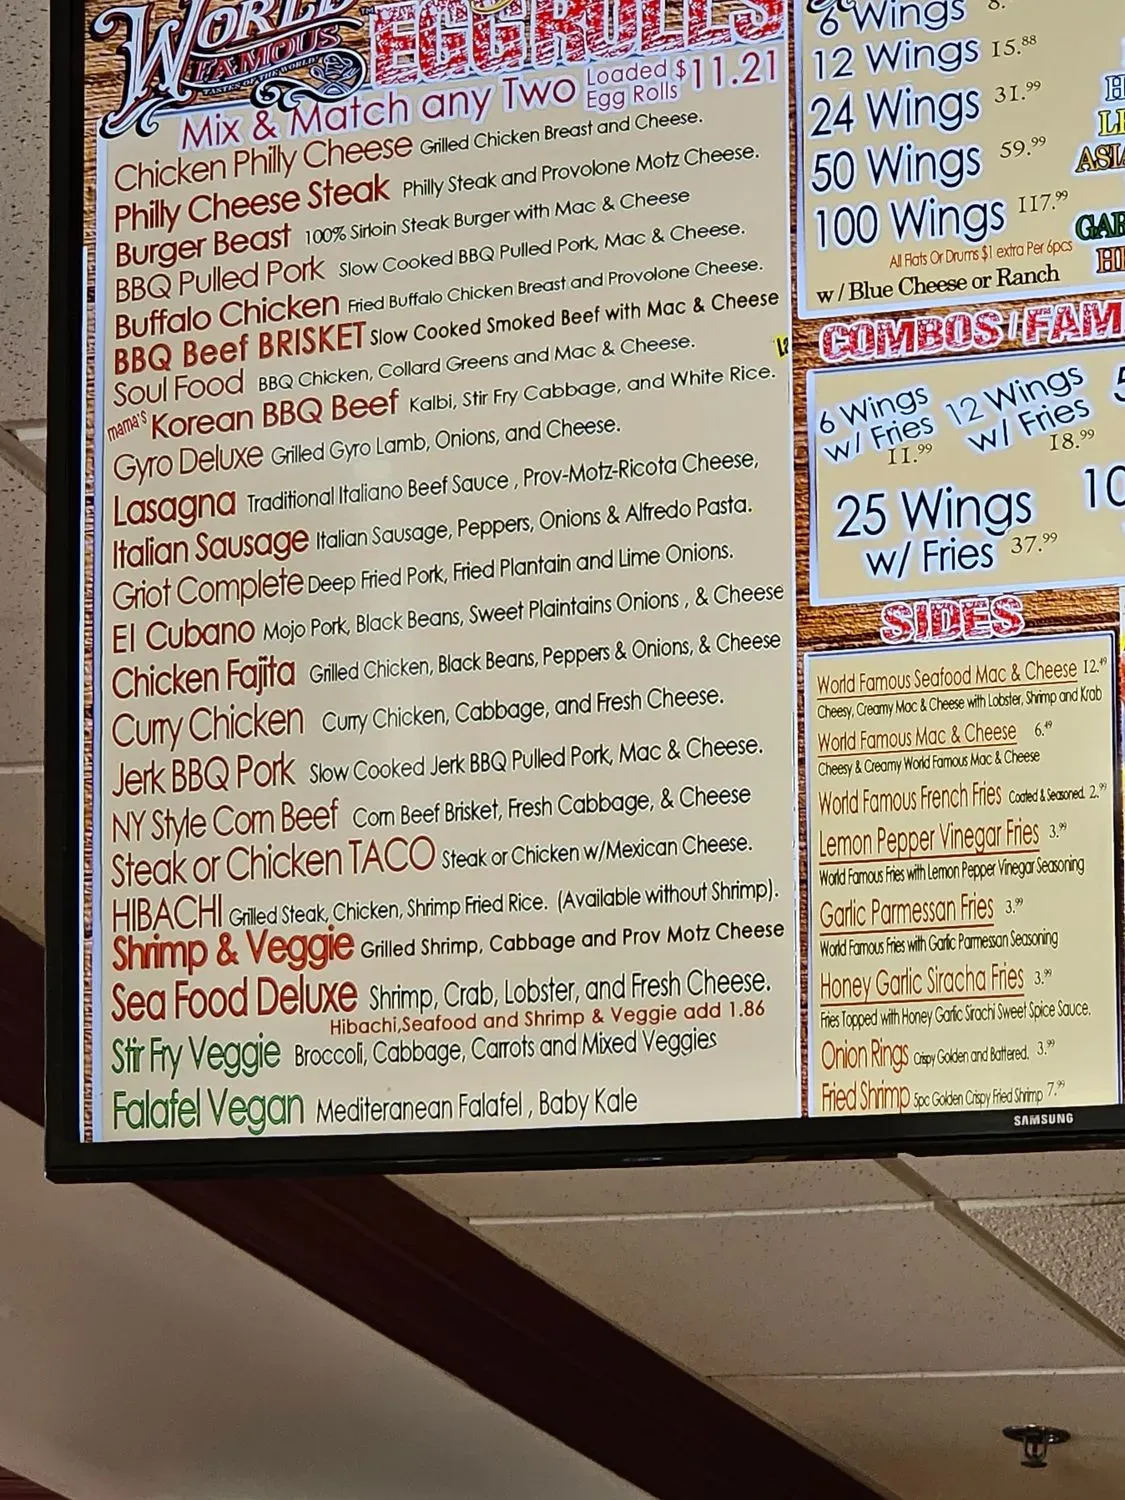 WORLD
FAMOUS
TASTES OF THE WORLD
EGGROLLS
Mix & Match any Two Loaded Egg Rolls $11.21
Chicken Philly Cheese Grilled Chicken Breast and Cheese.
Philly Cheese Steak Philly Steak and Provolone Motz Cheese.
Burger Beast 100% Sirloin Steak Burger with Mac & Cheese
BBQ Pulled Pork Slow Cooked BBQ Pulled Pork, Mac & Cheese.
Buffalo Chicken Fried Buffalo Chicken Breast and Provolone Cheese.
BBQ Beef BRISKET Slow Cooked Smoked Beef with Mac & Cheese
Soul Food BBQ Chicken, Collard Greens and Mac & Cheese.
mama's Korean BBQ Beef Kalbi, Stir Fry Cabbage, and White Rice.
Gyro Deluxe Grilled Gyro Lamb, Onions, and Cheese.
Lasagna Traditional Italiano Beef Sauce , Prov-Motz-Ricota Cheese,
Italian Sausage Italian Sausage, Peppers, Onions & Alfredo Pasta.
Griot Complete Deep Fried Pork, Fried Plantain and Lime Onions.
El Cubano Mojo Pork, Black Beans, Sweet Plaintains Onions , & Cheese
Chicken Fajita Grilled Chicken, Black Beans, Peppers & Onions, & Cheese
Curry Chicken Curry Chicken, Cabbage, and Fresh Cheese.
Jerk BBQ Pork Slow Cooked Jerk BBQ Pulled Pork, Mac & Cheese.
NY Style Corn Beef Corn Beef Brisket, Fresh Cabbage, & Cheese
Steak or Chicken TACO Steak or Chicken w/Mexican Cheese.
HIBACHI Grilled Steak, Chicken, Shrimp Fried Rice. (Available without Shrimp).
Shrimp & Veggie Grilled Shrimp, Cabbage and Prov Motz Cheese
Sea Food Deluxe Shrimp, Crab, Lobster, and Fresh Cheese.
Hibachi,Seafood and Shrimp & Veggie add 1.86
Stir Fry Veggie Broccoli, Cabbage, Carrots and Mixed Veggies
Falafel Vegan Mediteranean Falafel , Baby Kale
6 Wings 8.
12 Wings 15.88
24 Wings 31.99
50 Wings 59.99
100 Wings 117.99
All Flats Or Drums $1 extra Per 6pcs
w/ Blue Cheese or Ranch
COMBOS/FAM
6 Wings w/ Fries 11.99
12 Wings w/ Fries 18.99
25 Wings w/ Fries 37.99
10
SIDES
World Famous Seafood Mac & Cheese 12.49
Cheesy, Creamy Mac & Cheese with Lobster, Shrimp and Krab
World Famous Mac & Cheese 6.49
Cheesy & Creamy World Famous Mac & Cheese
World Famous French Fries Coated & Seasoned. 2.99
Lemon Pepper Vinegar Fries 3.99
World Famous Fries with Lemon Pepper Vinegar Seasoning
Garlic Parmessan Fries 3.99
World Famous Fries with Garlic Parmessan Seasoning
Honey Garlic Siracha Fries 3.99
Fries Topped with Honey Garlic Sirachi Sweet Spice Sauce.
Onion Rings Crispy Golden and Battered. 3.99
Fried Shrimp 5pc Golden Crispy Fried Shrimp 7.99
SAMSUNG